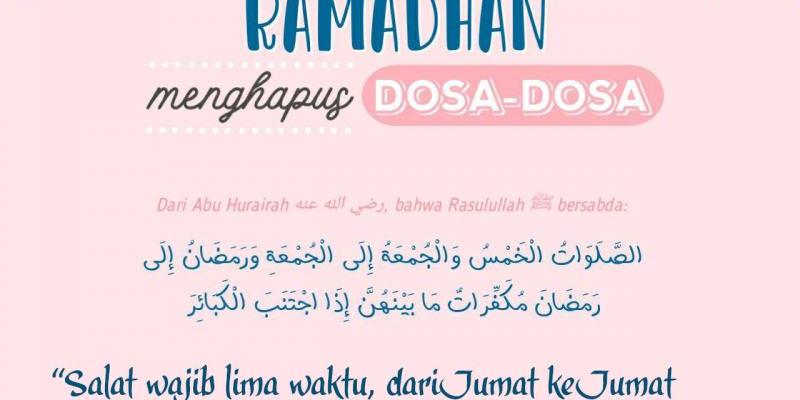 RAMADHAN
menghapus DOSA-DOSA
Dari Abu Hurairah رضي الله عنه, bahwa Rasulullah ﷺ bersabda:
الصَّلَوَاتُ الْخَمْسُ وَالْجُمْعَةُ إِلَى الْجُمْعَةِ وَرَمَضَانُ إِلَى
رَمَضَانَ مُكَفِّرَاتٌ مَا بَيْنَهُنَّ إِذَا اجْتَنَبَ الْكَبَائِرَ
“Salat wajib lima waktu, dari Jumat ke Jumat